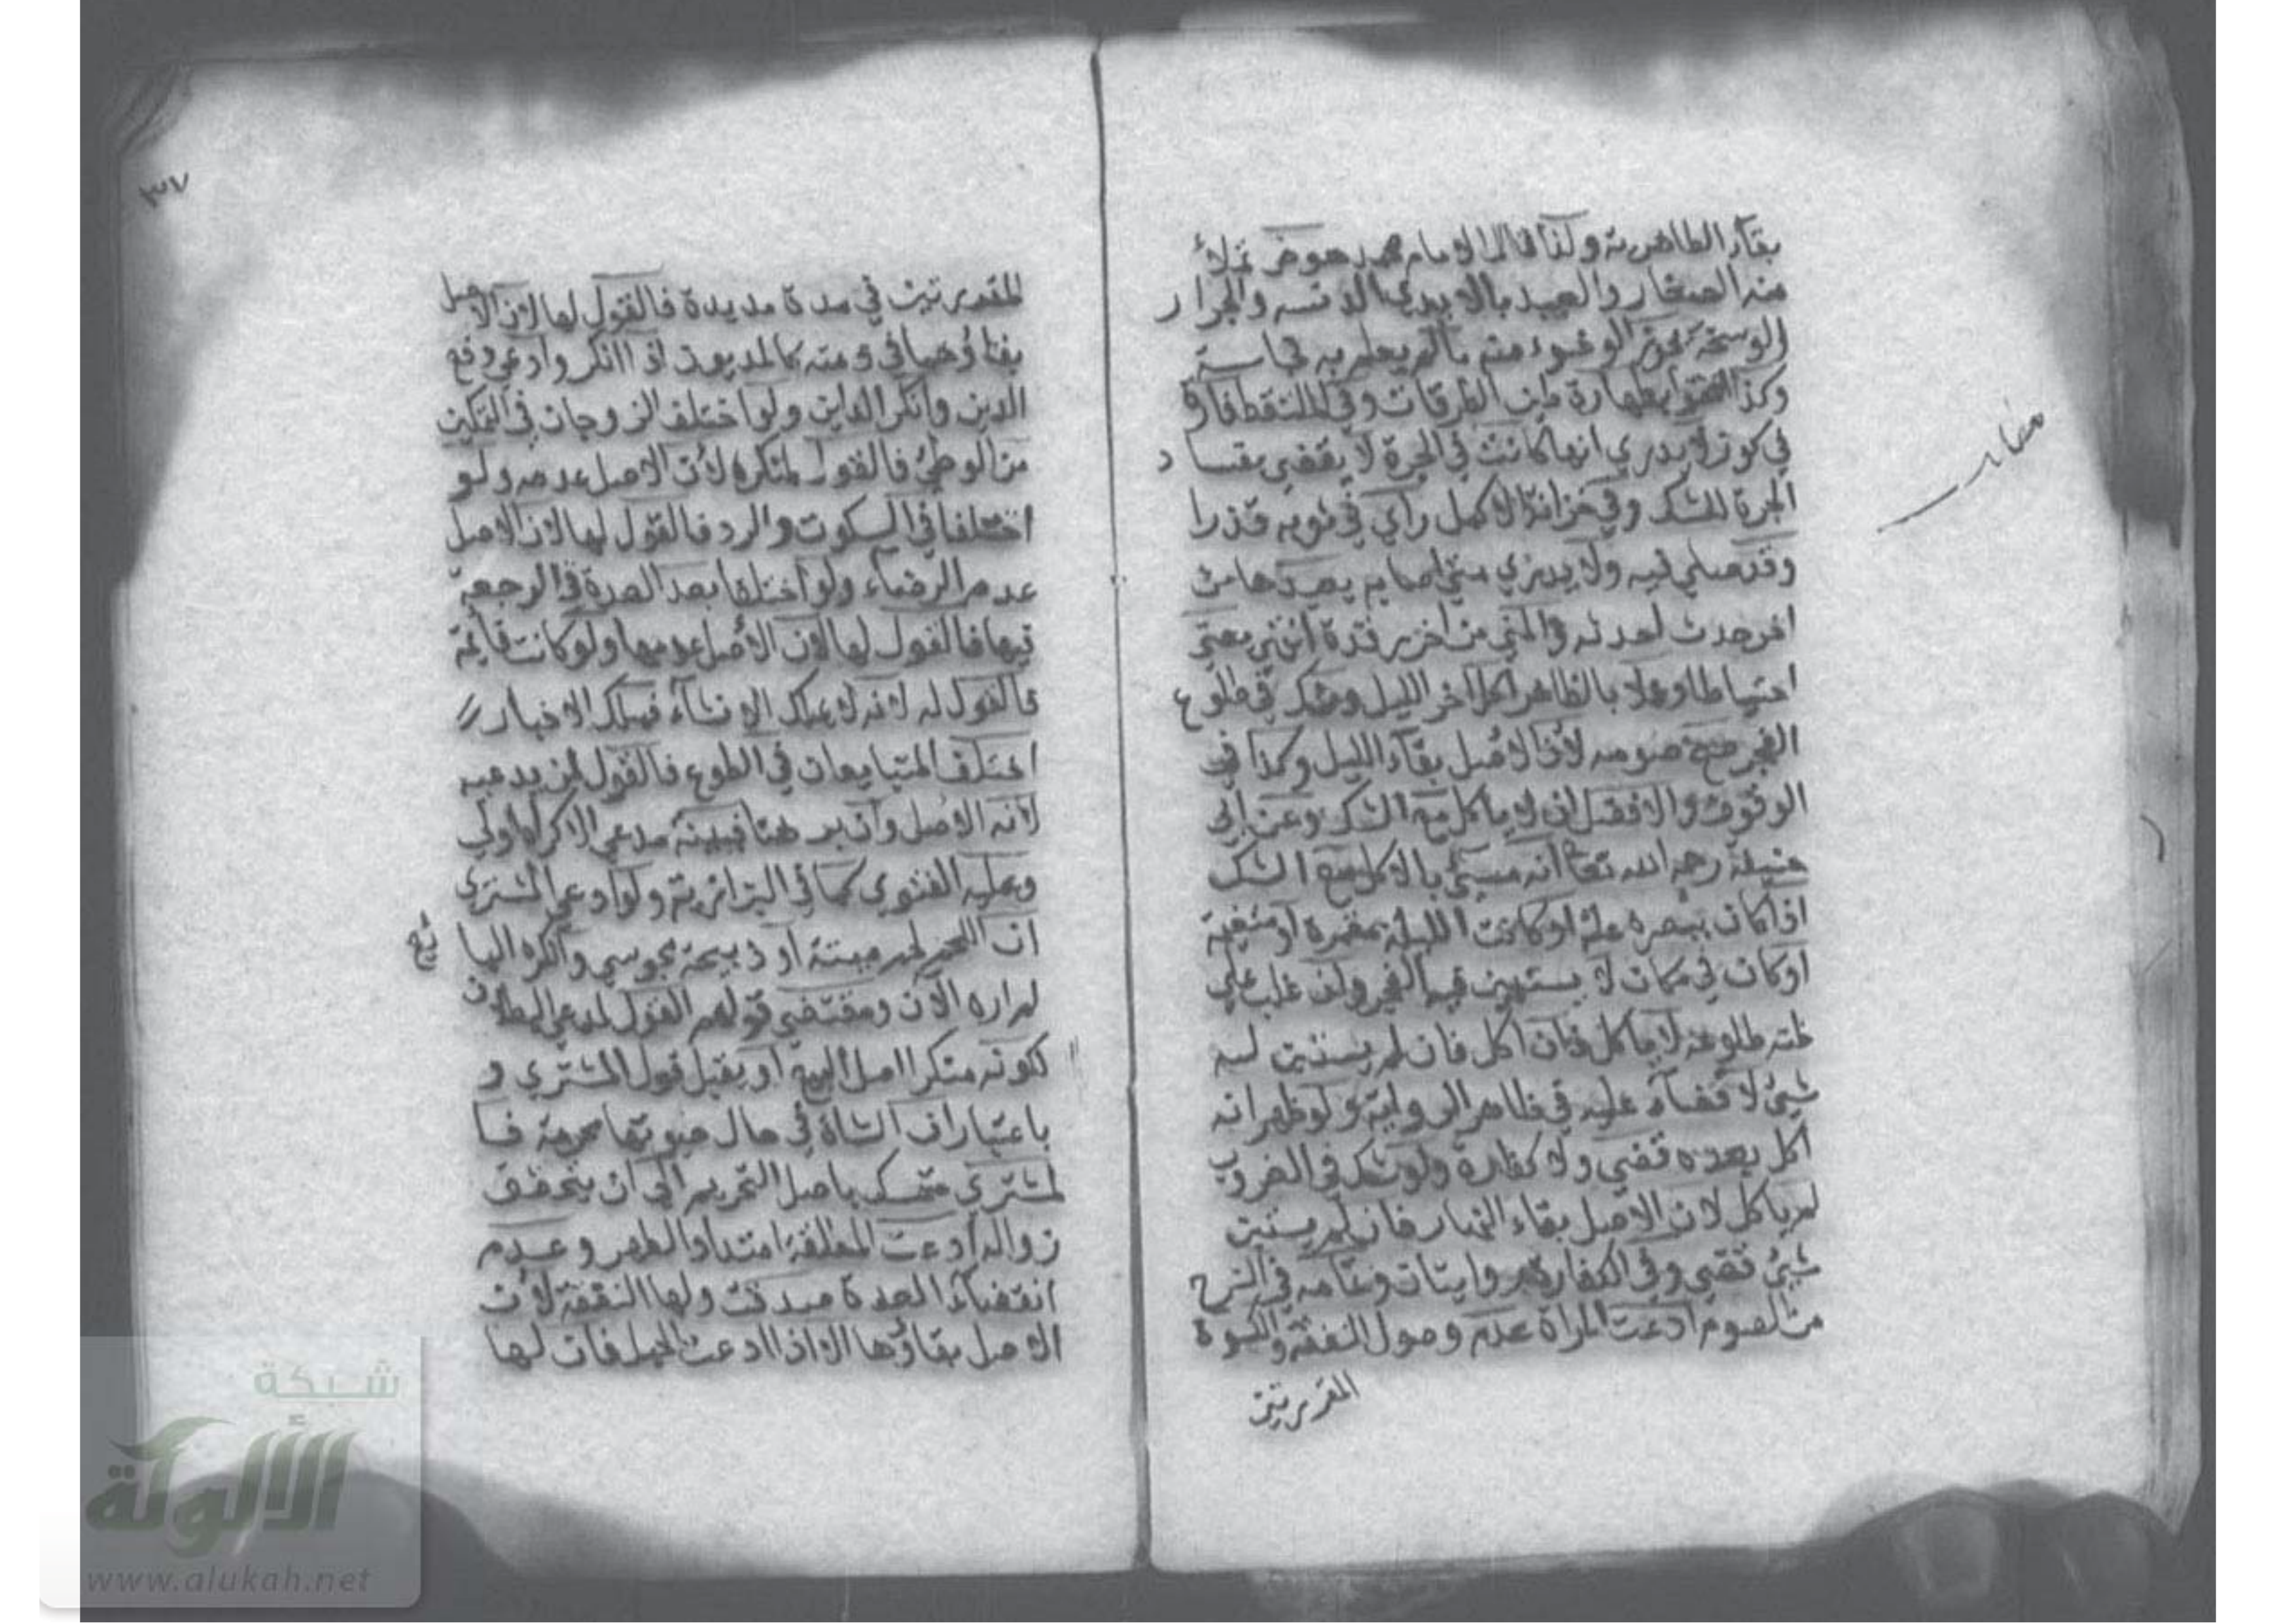 بقاء الطاهرية ولذا قال الامام محمد حوض تملأ
منه الصغار والعبيد بالايدي الدنسه والجرار
الوسخة يجوز الوضوء منه ما لم يعلم به نجاسة
وكذا افتوا بطهارة طين الطرقات وفي الملتقط فارة
في كوز لا يدري انها كانت في الجرة لا يقضي بفساد
الجرة للشك وفي خزانة الاكمل رأي في ثوبه قذرا
وقد صلي فيه ولا يدري متي اصابه يعيدها من
اخر حدث احدثه والمني من اخر رقدة انتهى يعني
احتياطا وعملا بالظاهر اكل اخر الليل وشك في طلوع
الفجر صح صومه لان الاصل بقاء الليل وكذا في
الوقوف والافضل ان لا ياكل مع الشك وعن ابي
حنيفة رحمه الله تعا انه مسئ بالاكل مع الشك
اذا كان ببصره علة او كانت الليلة مقمرة او متغيمة
او كان في مكان لا يستبين فيه الفجر وان غلب علي
ظنه طلوعه لا ياكل فان اكل فان لم يستبن له
شيئ لا قضاء عليه في ظاهر الرواية ولو ظهر انه
اكل بعده قضي ولا كفارة ولو شك في الغروب
لم ياكل لان الاصل بقاء النهار فان لم يستبن
شيئ قضي وفي الكفارة روايتان وتمامه في الشرح
من الصوم ادعت المراة عدم وصول النفقة والكسوة
المقررتين
٣٧
المقررتين في مدة مديدة فالقول لها لان الاصل
بقاؤهما في ذمته كالمديون اذا انكر وادعي دفع
الدين وانكر الداين ولو اختلف الزوجان في التمكين
من الوطئ فالقول لمنكره لان الاصل عدمه ولو
اختلفا في السكوت والرد فالقول لها لان الاصل
عدم الرضاء ولو اختلفا بعد العدة في الرجعة
فيها فالقول لها لان الاصل عدمها ولو كانت قائمة
فالقول له لانه لا يملك الانشاء فيملك الاخبار
اختلف المتبايعان في الطوع فالقول لمن يدعيه
لانه الاصل وان برهنا فبينة مدعي الاكراه اولي
وعليه الفتوي كما في البزازية ولو ادعي المشتري
ان اللحم لحم ميتة او ذبيحة مجوسي وانكره البا
يع
لم اره الآن ومقتضي قولهم القول لمدعي البطلان
لكونه منكرا اصل البيع او يقبل قول المشتري و
باعتبار ان الشاة في حال حيوتها محرمة فا
لمشتري متمسك باصل التحريم الي ان يتحقق
زواله ادعت المطلقة امتداد الطهر وعدم
انقضاء العدة صدقت ولها النفقة لان
الاصل بقاؤها الا اذا ادعت الحبل فان لها
شبكة
الألوكة
www.alukah.net